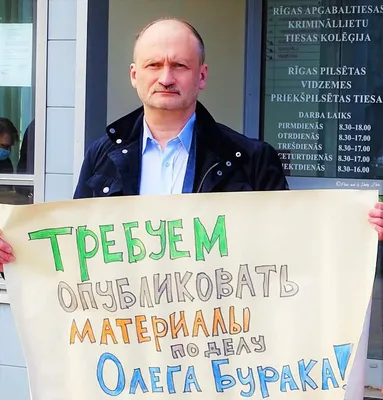 RĪGAS APGABALTIESAS
KRIMINĀLLIETU
TIESAS KOLĒĢIJA
RĪGAS PILSĒTAS
VIDZEMES
PRIEKŠPILSĒTAS TIESA
DARBA LAIKS
PIRMDIENĀS 8.30-18.00
OTRDIENĀS 8.30-17.00
TREŠDIENĀS 8.30-17.00
CETURTDIENĀS 8.30-17.00
8.30-16.00
ТРЕБУЕМ
ОПУБЛИКОВАТЬ
МАТЕРИАЛЫ
ПО ДЕЛУ
ОЛЕГА БУРАКА!